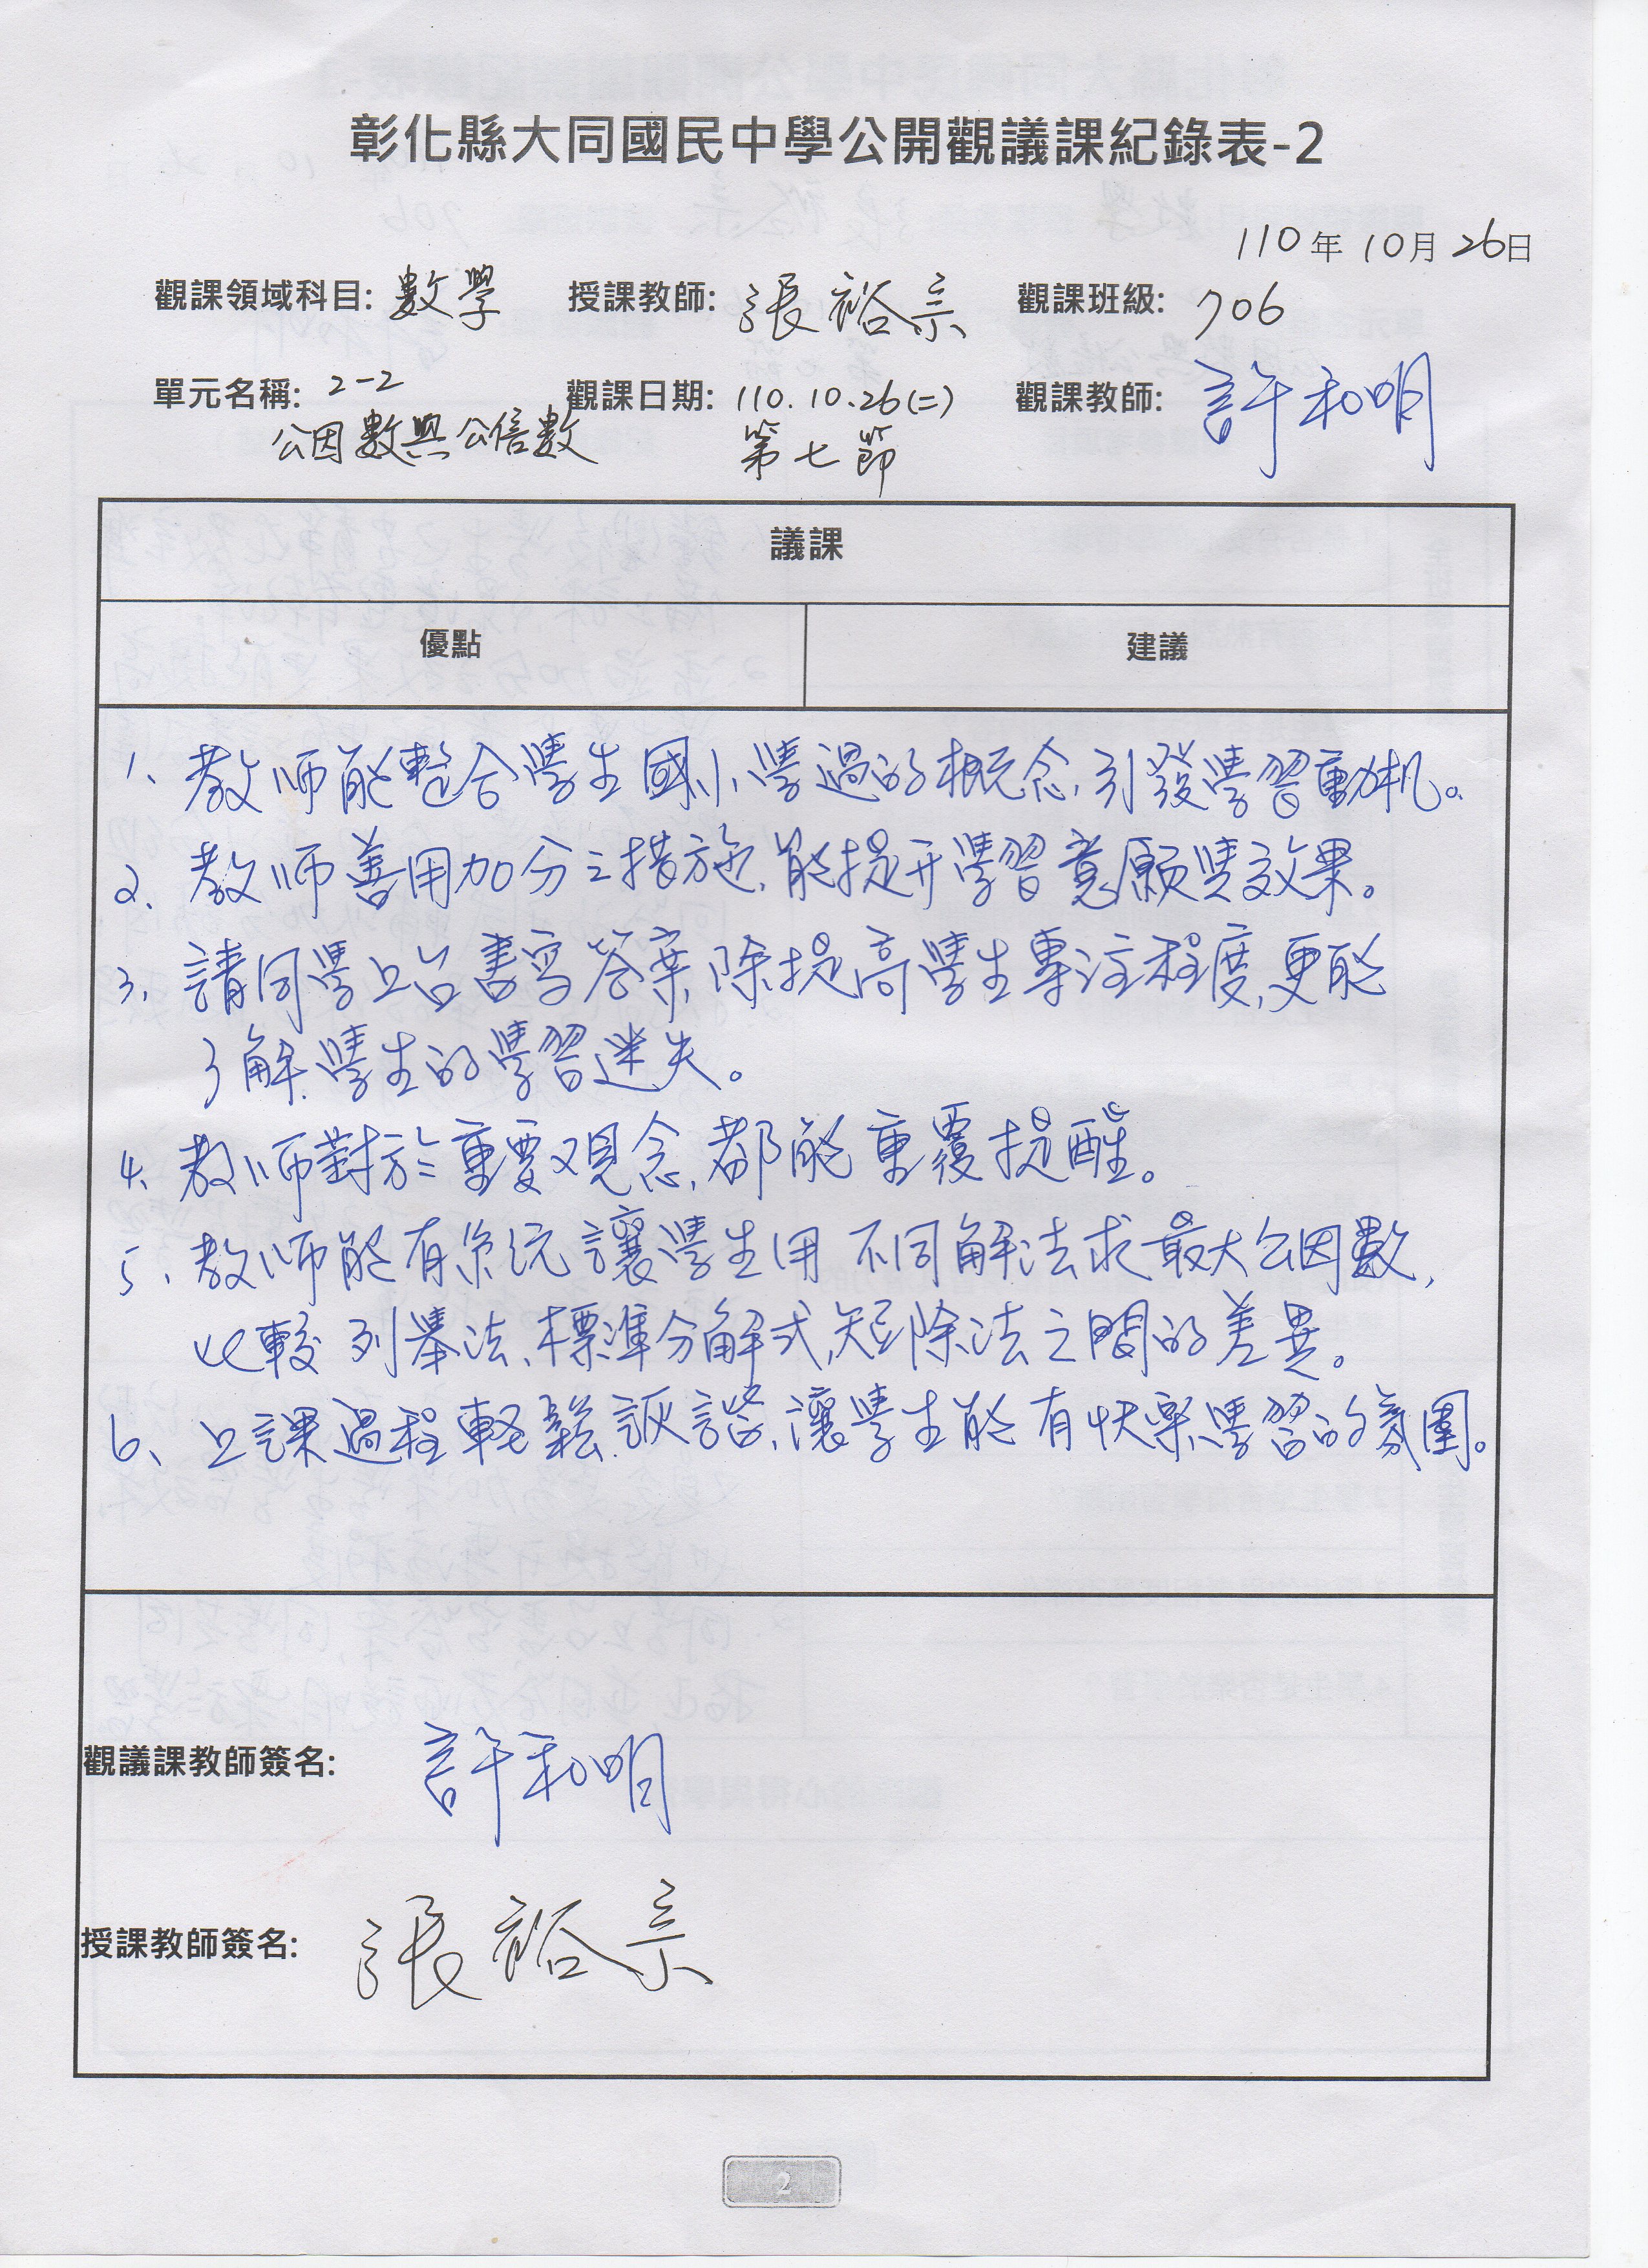 彰化縣大同國民中學公開觀議課紀錄表-2
110年10月26日
觀課領域科目: 數學 授課教師: 張裕宗 觀課班級: 706
單元名稱: 2-2 觀課日期: 110.10.26(二) 觀課教師: 許和明
公因數與公倍數 第七節
議課
優點 建議
1、教师能整合學生國小學過的概念,引發學習動机。
2、教师善用加分之措施,能提升學習意願與效果。
3、請同學上台書寫答案,除提高學生專注程度,更能
了解學生的學習迷失。
4、教师對於重要观念,都能重覆提醒。
5、教师能有系统讓學生用不同解法求最大公因數,
比較列舉法、標準分解式、短除法之間的差異。
6、上課過程輕鬆詼諧、讓學生能有快樂學習的氛圍。
觀議課教師簽名: 許和明
授課教師簽名: 張裕宗
2